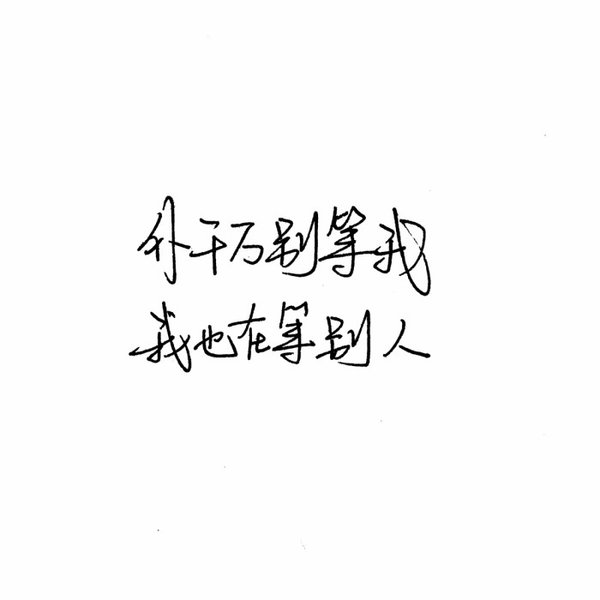 你千万别等我
我也在等别人